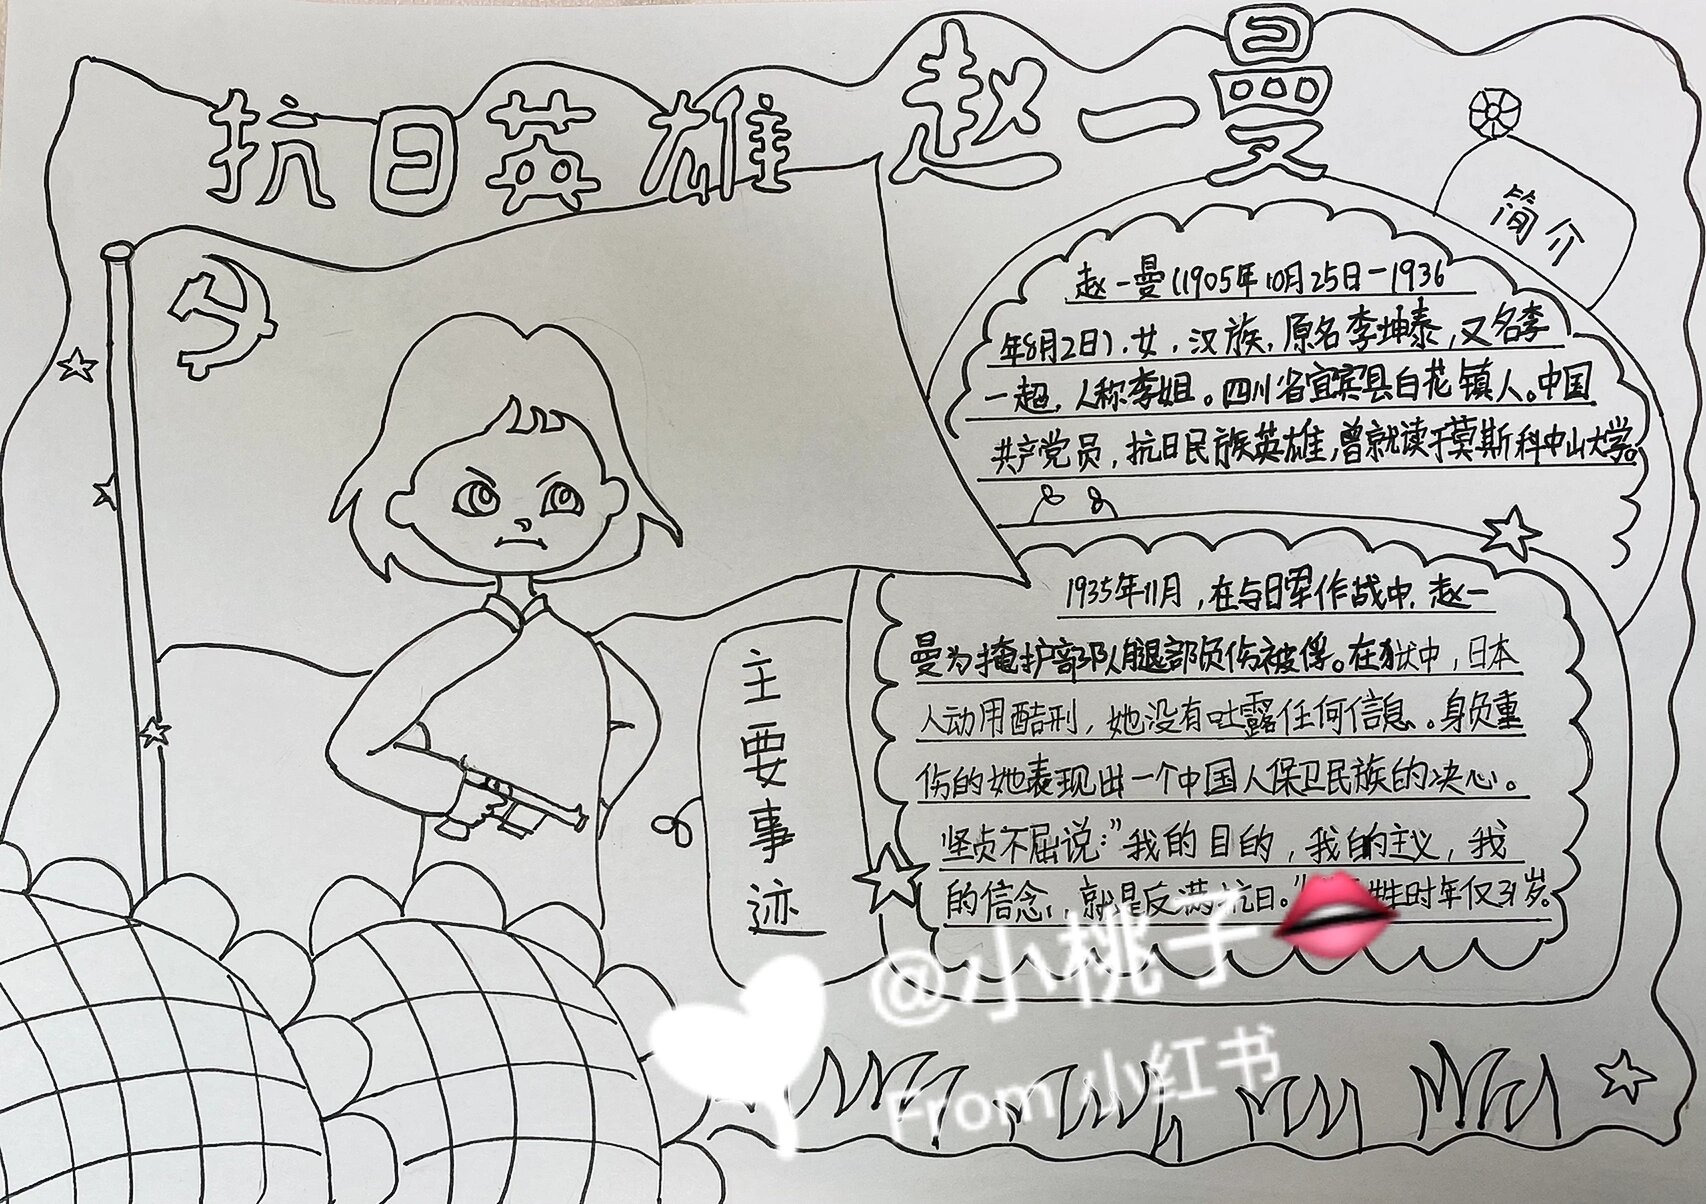 抗日英雄 赵一曼
简介
赵一曼(1905年10月25日-1936
年8月2日),女,汉族,原名李坤泰,又名李
一超,人称李姐。四川省宜宾县白花镇人。中国
共产党员,抗日民族英雄,曾就读于莫斯科中山大学。
主要事迹
1935年11月,在与日军作战中,赵一
曼为掩护部队腿部负伤被俘。在狱中,日本
人动用酷刑,她没有吐露任何信息。身负重
伤的她表现出一个中国人保卫民族的决心。
坚贞不屈说:"我的目的,我的主义,我
的信念,就是反满抗日。"牲时年仅31岁。
@小桃子
From 小红书